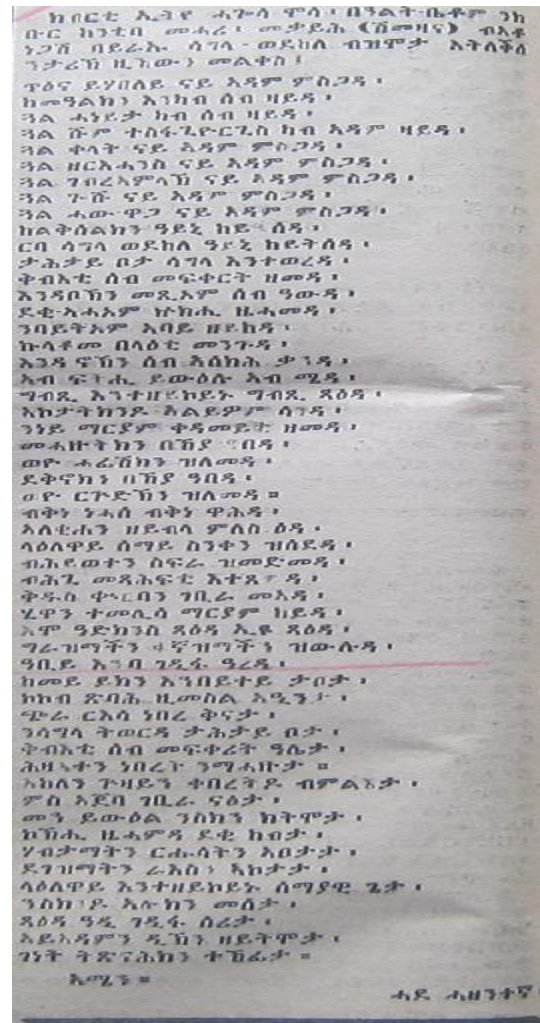 ክበርቲ ኢትዮ ሓጐሳ ሞሳ፣ በዓልት-ቤቶም ንክ
ቡር ከንቲባ መሓሪ፣ መቃይሕ (ሽመዛና) ብኣቶ
ነጋሽ ባይራኡ ሳግላ-ወደከለ ብዝሞታ ኣትለቅሰ
ንታሪኽ ዚኸውን መልቀስ፣
ጥዕና ይሃበለይ ናይ ኣዳም ምስጋዳ፣
ከመዓልክን እንካብ ሰብ ዛይዳ፣
ጓል ሓነይታ ካብ ሰብ ዛይዳ፣
ጓል ሹም ተስፋጊዮርጊስ ካብ ኣዳም ዛይዳ፣
ጓል ቀላት ናይ ኣዳም ምስጋዳ፣
ጓል ዘርኣሓንስ ናይ ኣዳም ምስጋዳ፣
ጓል ገብረኣምላኽ ናይ ኣዳም ምስጋዳ፣
ጓል ጉሹ ናይ ኣዳም ምስጋዳ፣
ጓል ሓው-ዋጋ ናይ ኣዳም ምስጋዳ፣
ከልቅሰልክን ዓይኒ ከይ ሰዳ፣
ርባ ሳግላ ወደከለ ዓይኒ ከይትሰዳ፣
ታሕታይ ቦታ ሳግላ እንተወረዳ፣
ቅብእቲ ሰብ መፍቀርት ዘመዳ፣
እንዳቦኽን መጺኦም ሰብ ዓውዳ፣
ደቂ-ኣሓኦም ኮክሒ ዜሓመዳ፣
ንባይትኦም ኣባይ ዘይከዳ፣
ኩላቶመ በላዕቲ መንጉዳ፣
እንዳ ኖኽን ሰብ ኣሰክሕ ቃ ዳ፣
ኣብ ፍትሒ ይውዕሉ ኣብ ሜዳ፣
ግብጺ እንተዘይኮይኑ ግብጺ ጸዕዳ፣
ኣኮታትክንዶ ኣልይዎም ሳንዳ፣
ንነይ ማርያም ቀዳመይቲ ዘመዳ፣
መሓዙትክን በኽያ ዓበዳ፣
ወዮ ሓሬሽክን ዝለመዳ፣
ደቅኖክን በኽያ ዓበዳ፣
ወዮ ርጕድኽን ዝለመዳ።
ብቅነ ነሓሰ ብቅነ ዋሕዳ፣
ኣለቲሐን ዘይብላ ምለስ ዕዳ፣
ላዕለዋይ ሰማይ ስንቀን ዝሰደዳ፣
ብሕይወተን ስፍራ ዝመድመዳ፣
ብሕጊ መጻሕፍቲ እተጸ ዳ፣
ቅዱስ ቍርባን ገቢራ መኣዳ፣
ሄዋን ተመሊሳ ማርያም ከይዳ፣
እሞ ዓድክንስ ጸዕዳ ኢዩ ጸዕዳ፣
ግራዝማችን ቀኛዝማችን ዝውሉዳ፣
ዓቢይ እንባ ገዲፋ ዓረዳ፣
ከመይ ይክን እንበይተይ ታቦታ፣
ኮኮብ ጽባሕ ዚመስል ኣዒንታ፣
ጭራ ርእሳ ነበረ ቅናታ፣
ንሳግላ ትወርዳ ታሕታይ ቦታ፣
ቅብእቲ ሰብ መፍቀሪት ዓሌታ፣
ሕዛእተን ነበረት ንማሓዙታ።
ኣከለን ጐዛይን ቀበረትዶ ብምልእታ፣
ምስ ኣጀባ ገቢራ ናዕታ፣
መን ይውዕል ንስክን ክትሞታ፣
ኮኽሒ ዜሓምዳ ደቂ ከብታ፣
ሃብታማትን ርሑሳትን ኣቦታታ፣
ደገዝማትን ራእስን ኣኮታታ፣
ላዕለዋይ እንተዘይኮይኑ ሰማያዊ ጌታ፣
ንስክንዶ ኣሎክን መሰታ፣
ጸዕዳ ዓዲ ገዲፋ ሰሪታ፣
ኣይኣዳምን ዲኽን ዘይትሞታ፣
ገነት ትጽናሕክን ተኸፊታ።
ኣሜን።
ሓደ ሓዘንተኛ